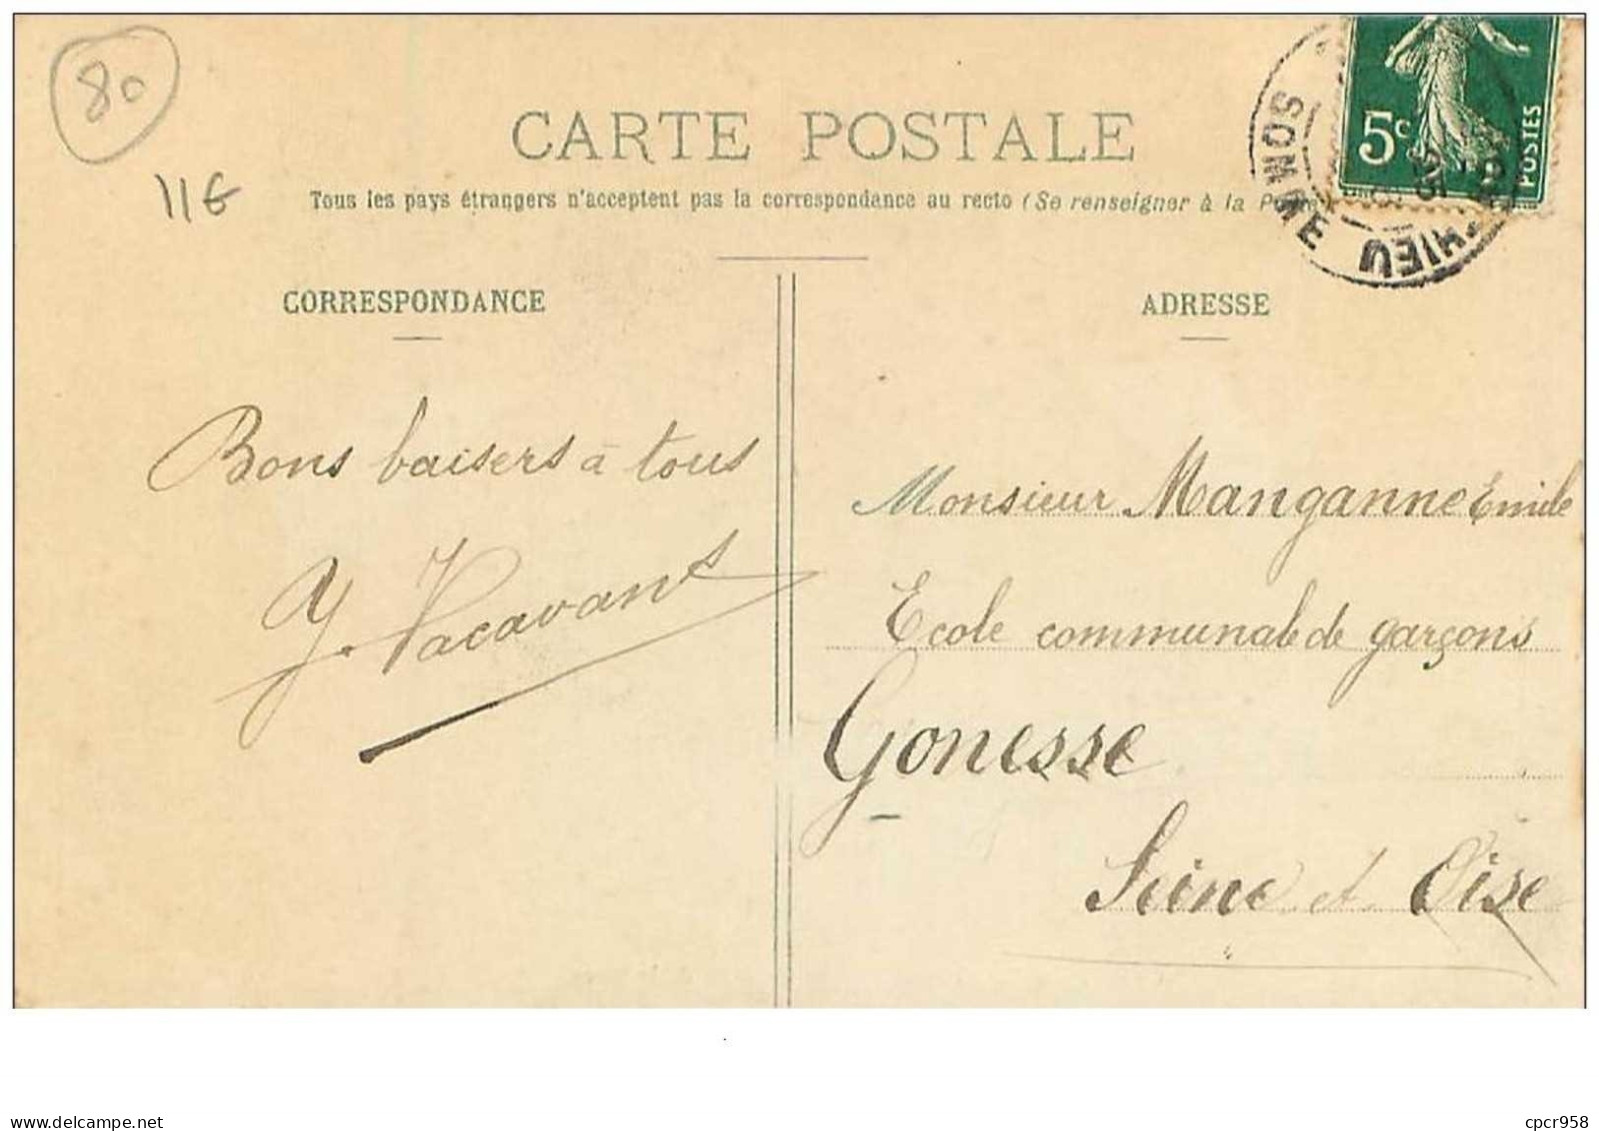 80
11€
CARTE POSTALE
Tous les pays étrangers n'acceptent pas la correspondance au recto (Se renseigner à la Poste
5c
POSTES
SOMME
CORRESPONDANCE
ADRESSE
Bons baisers à tous
Y. Vacavant
Monsieur Manganne Emile
Ecole communale de garçons
Gonesse
Seine et Oise
delcampe.net
cpcr958